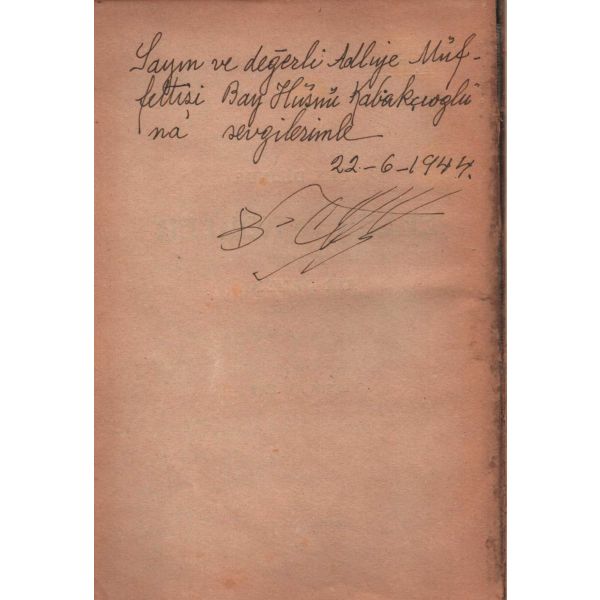 Sayın ve değerli Adliye Müf-
fettişi Bay Hüsnü Kabakçıoğlu
na sevgilerimle
22-6-1944.